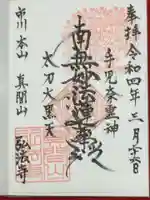 奉拝 令和四年三月二十六日
手児奈霊神
南無妙法蓮華経
太刀大黒天
市川 本山 真間山
弘法寺